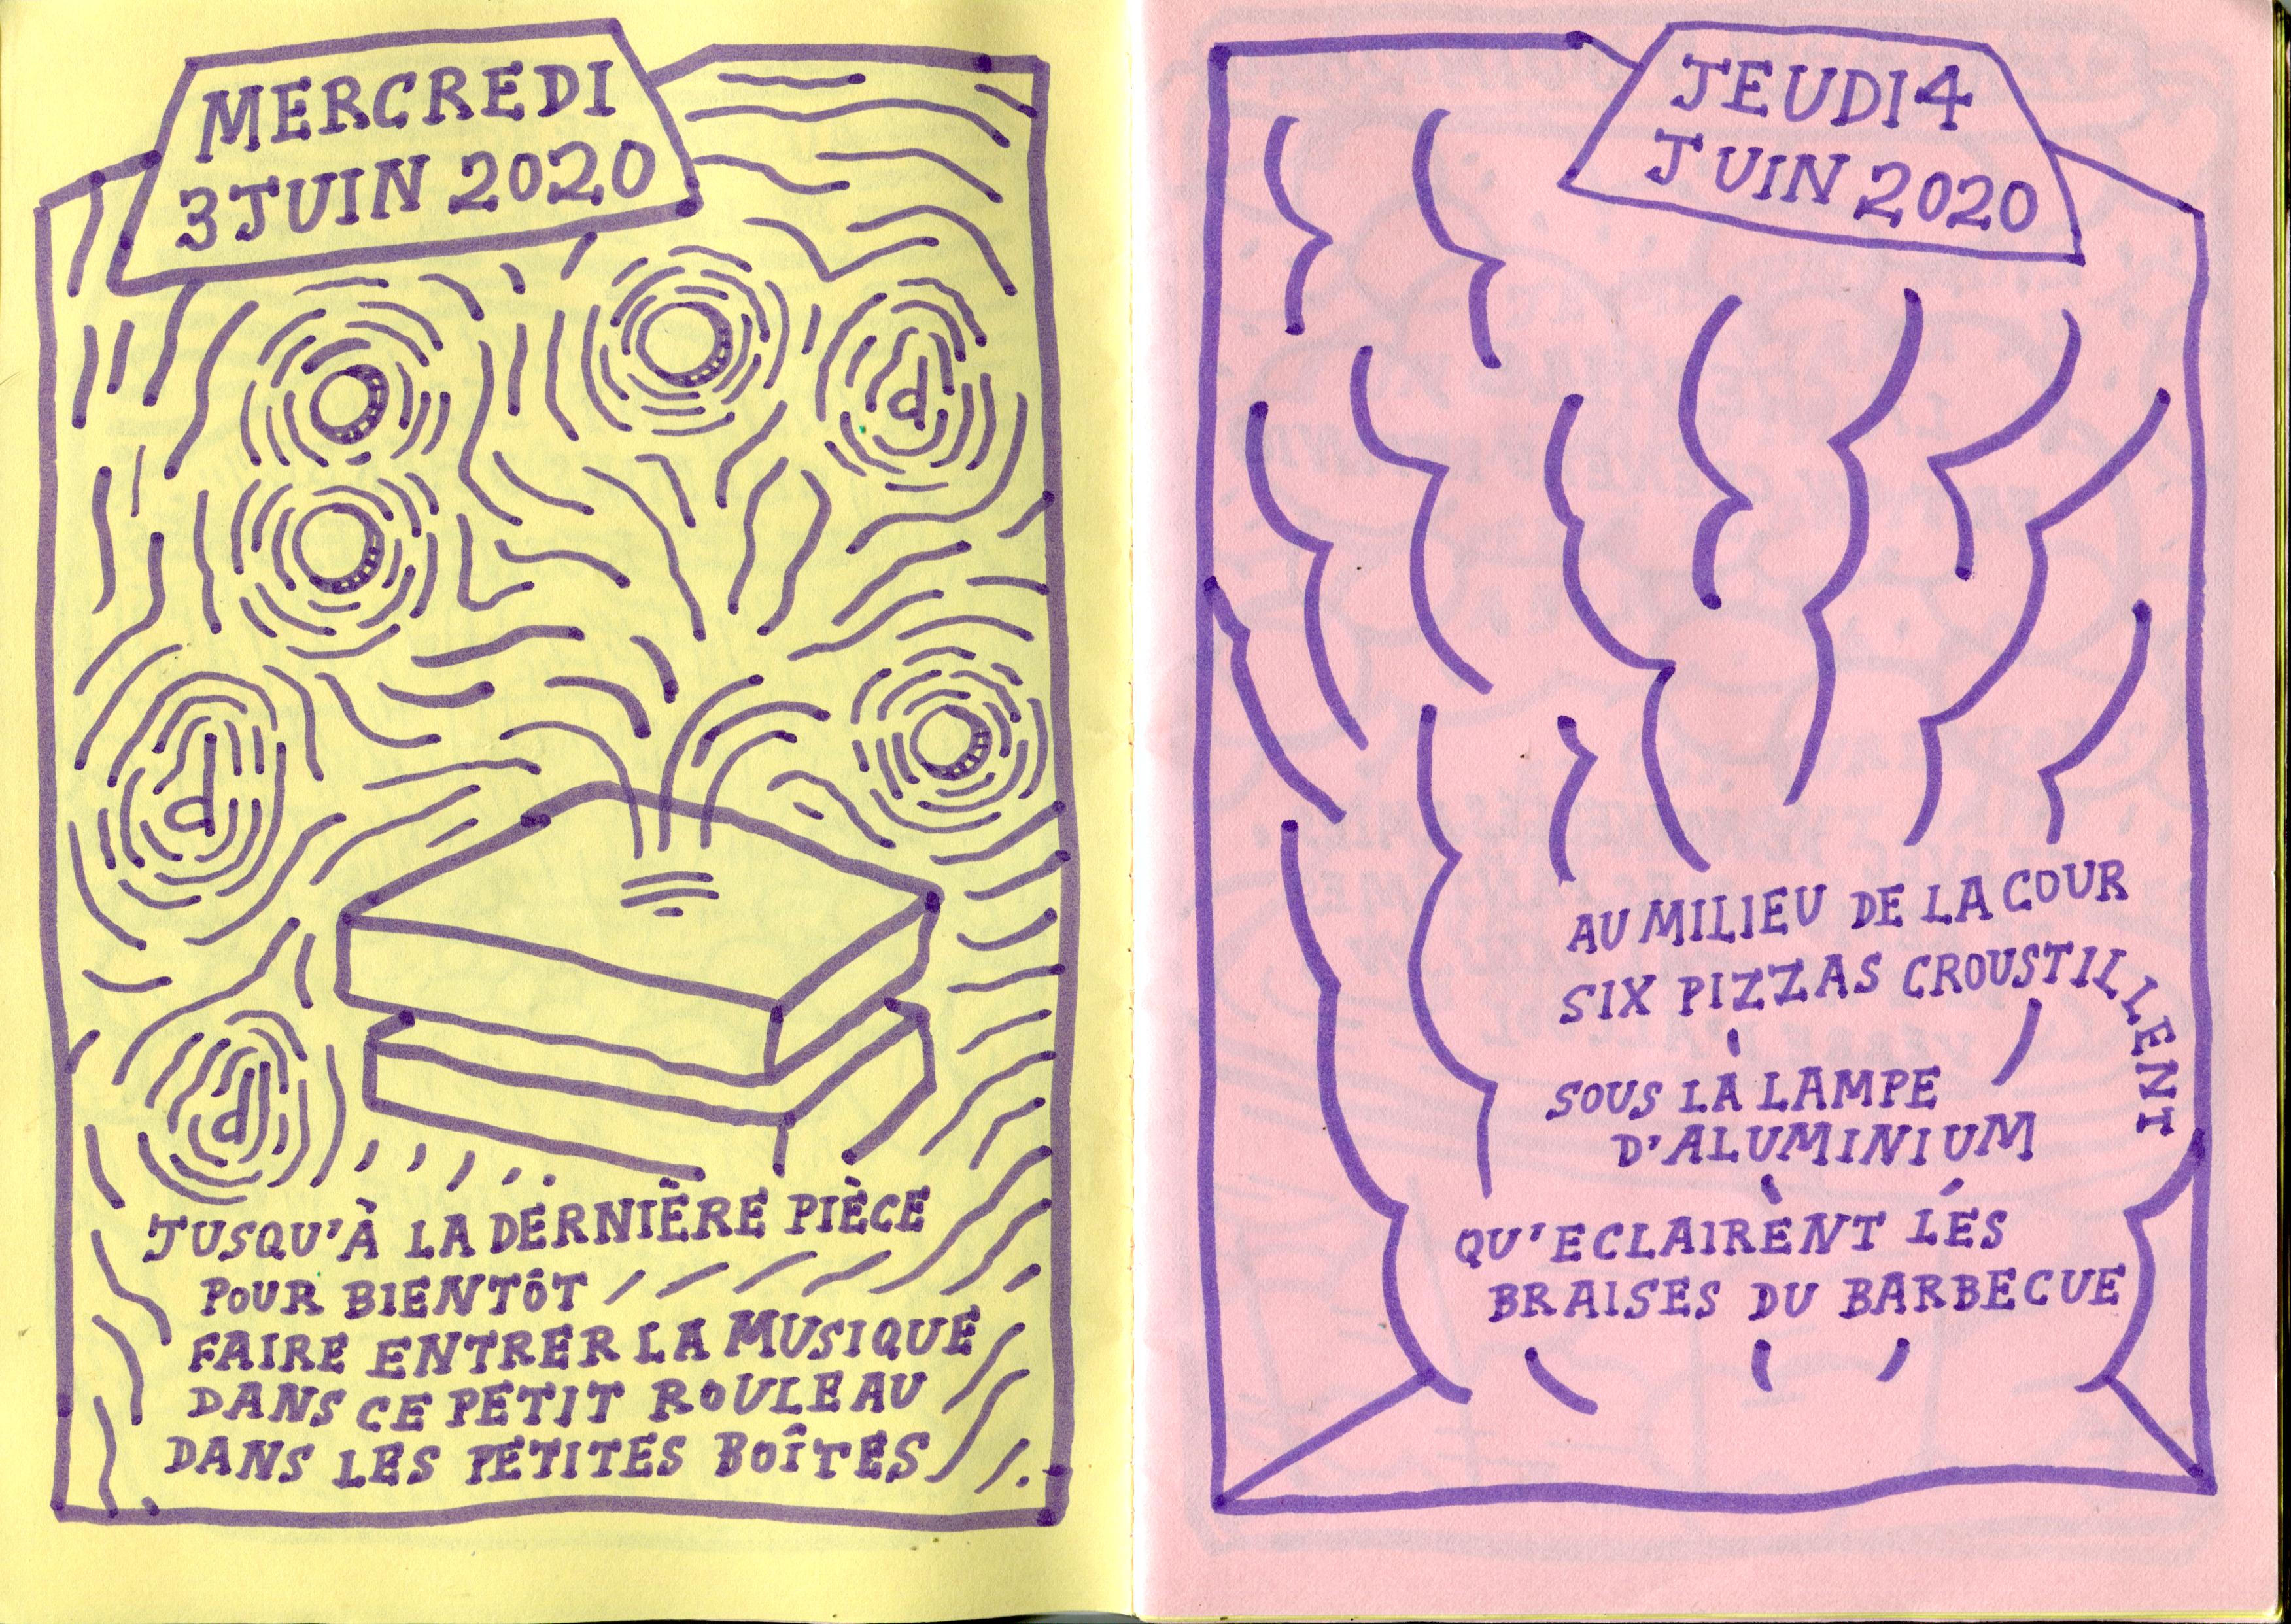 MERCREDI
3 JUIN 2020
d
d
d
JUSQU'À LA DERNIÈRE PIÈCE
POUR BIENTÔT
FAIRE ENTRER LA MUSIQUE
DANS CE PETIT ROULEAU
DANS LES PETITES BOÎTES
JEUDI 4
JUIN 2020
AU MILIEU DE LA COUR
SIX PIZZAS CROUSTILLENT
SOUS LA LAMPE
D'ALUMINIUM
QU'ECLAIRENT LES
BRAISES DU BARBECUE